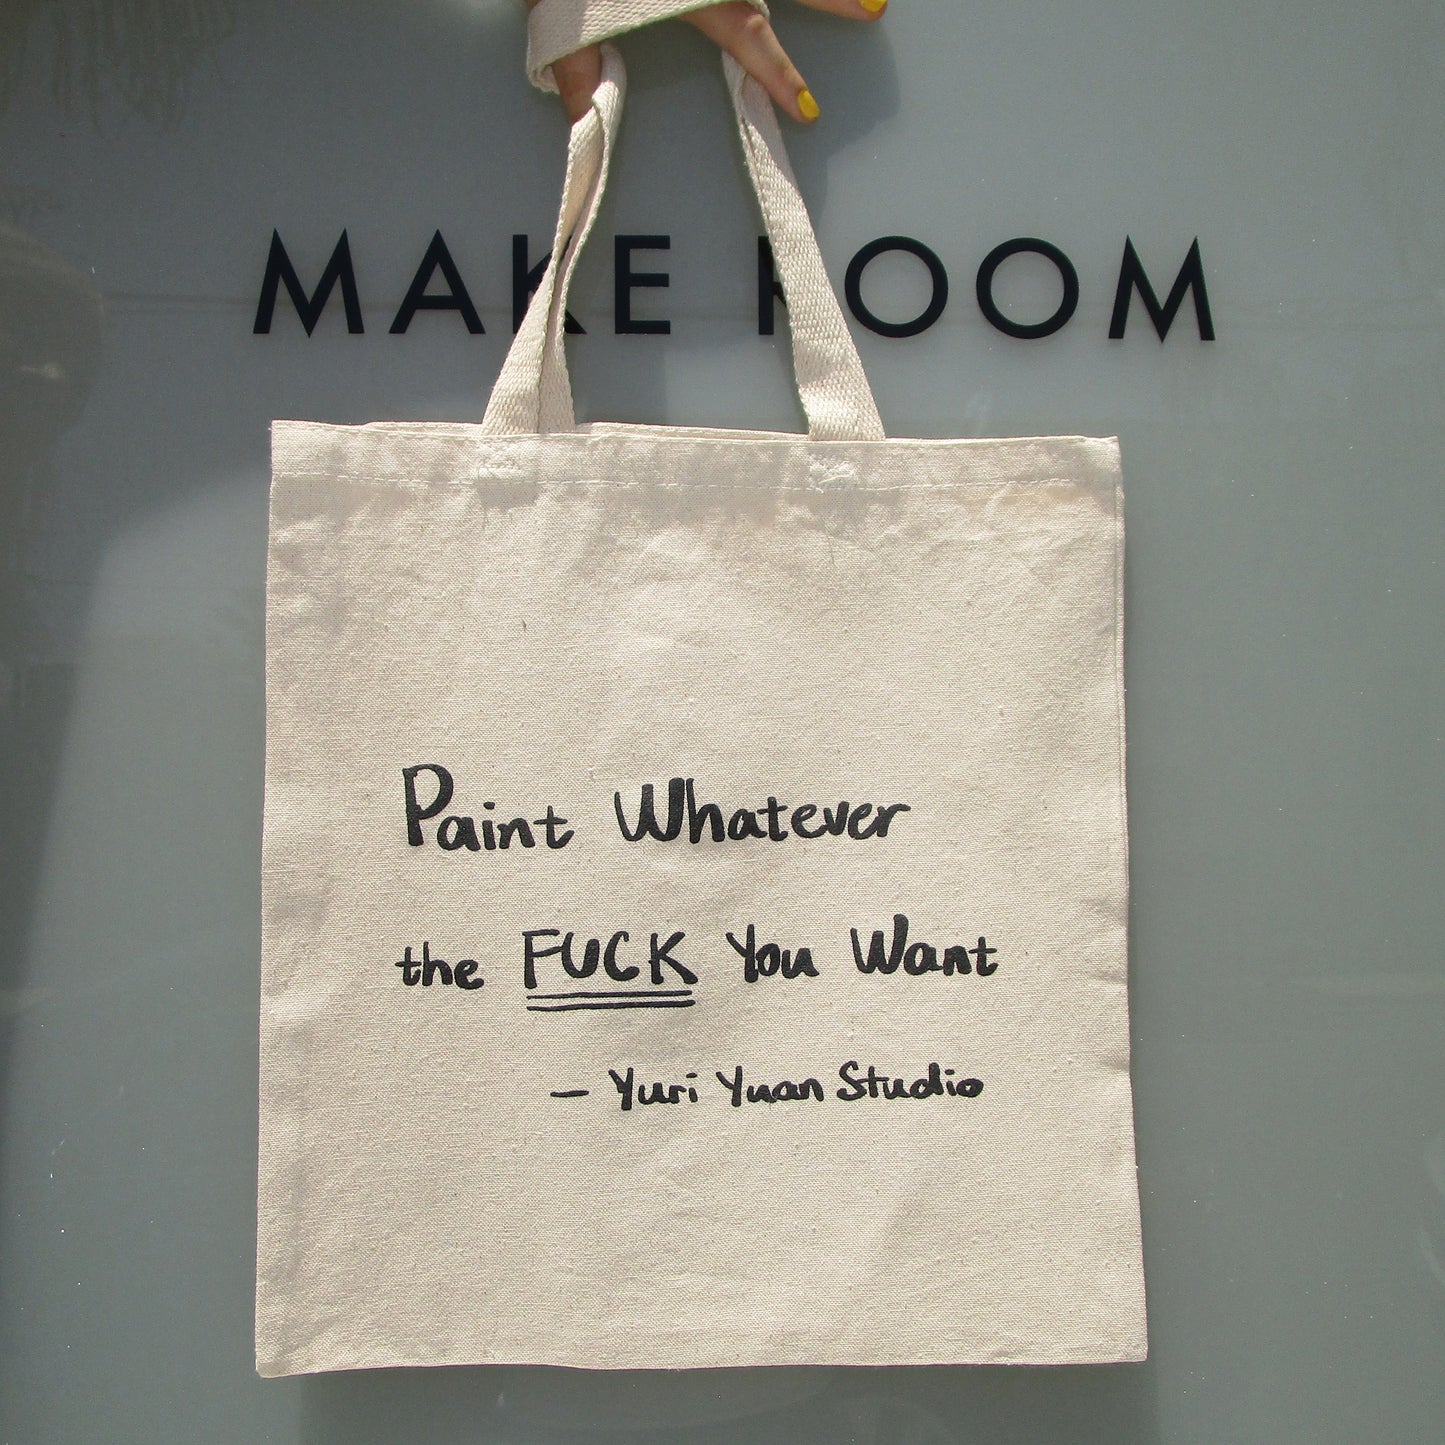 MAKE ROOM
Paint Whatever
the FUCK You Want
— Yuri Yuan Studio